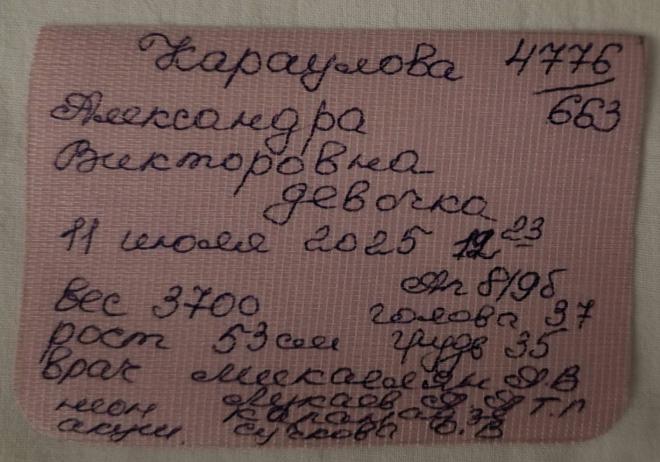 Караулова 4776/663
Александра
Викторовна
девочка
11 июля 2025 12 23
Ап 8/9б
вес 3700 голова 37
рост 53см грудь 35
врач Микаелян А В
неон
акуш. Сучкова О. В